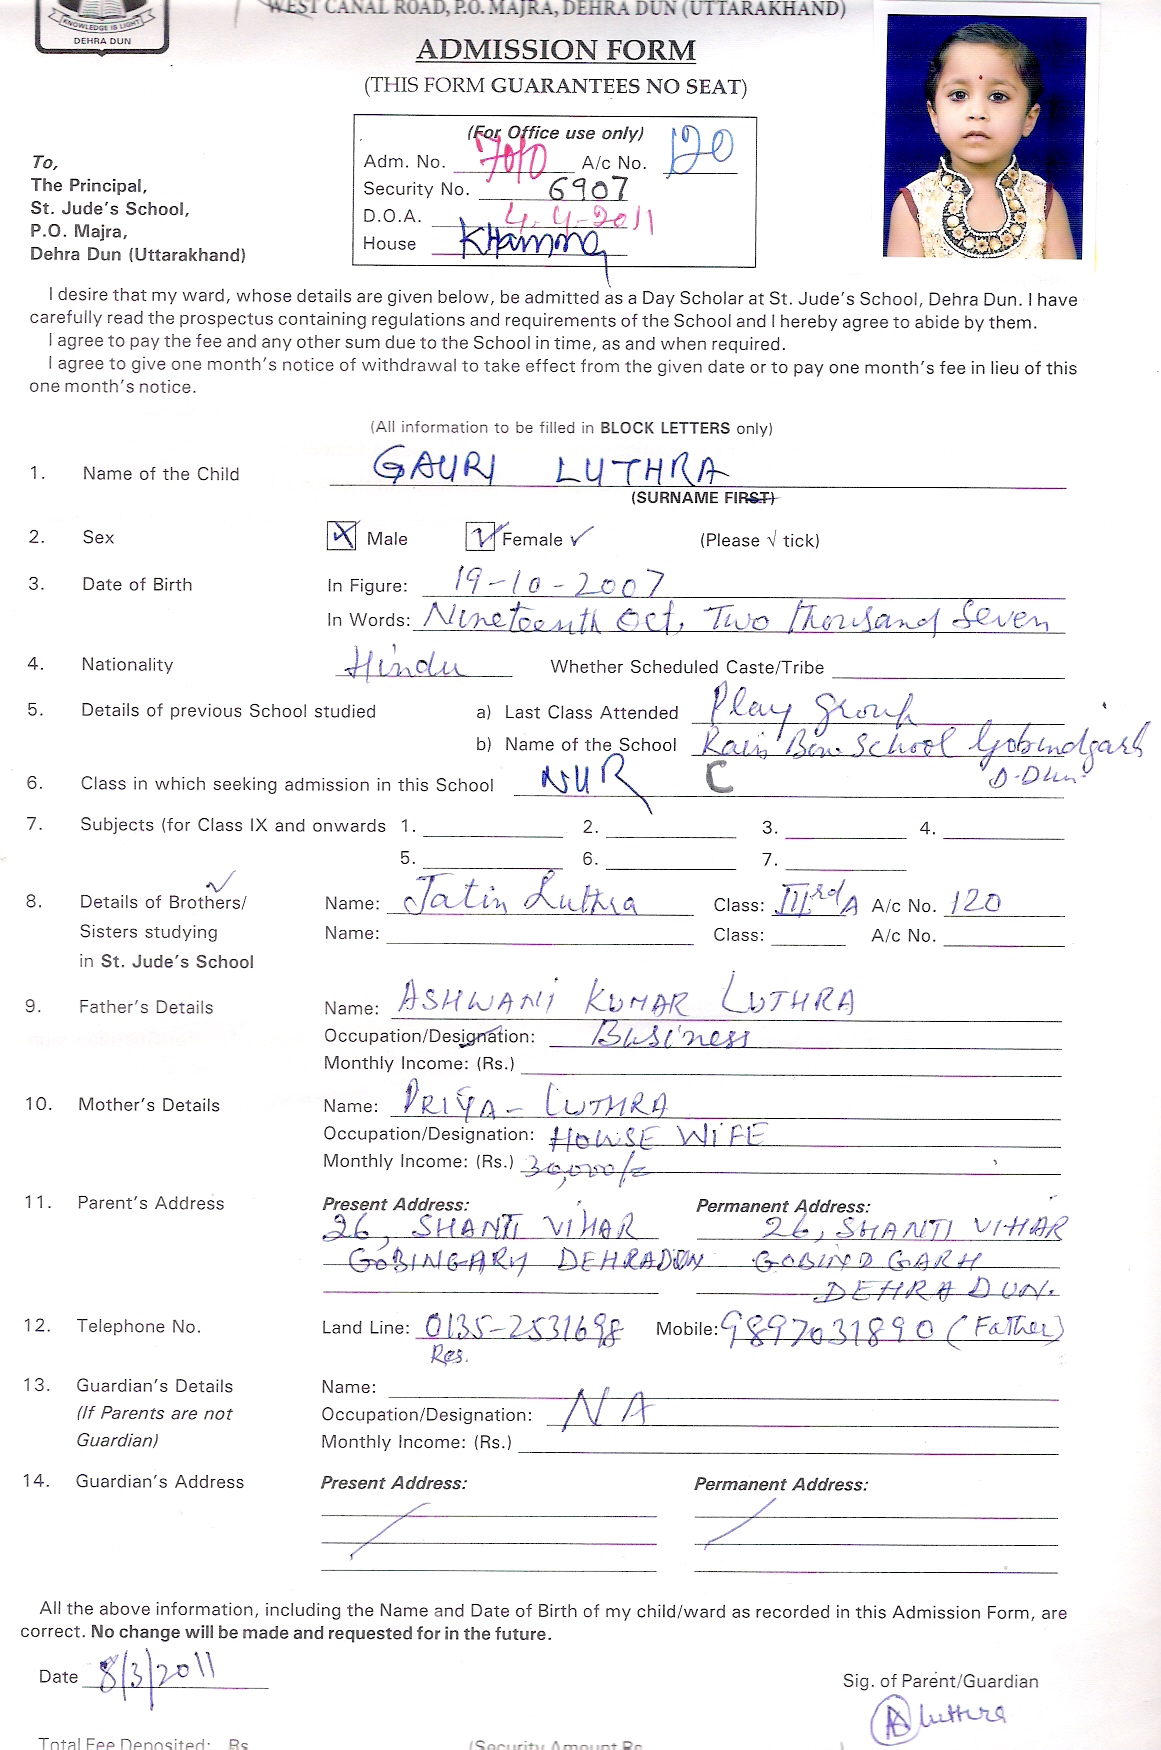 KNOWLEDGE IS LIGHT
DEHRA DUN
WEST CANAL ROAD, P.O. MAJRA, DEHRA DUN (UTTARAKHAND)
ADMISSION FORM
(THIS FORM GUARANTEES NO SEAT)
(For Office use only)
Adm. No. 7010 A/c No. 120
Security No. 6907
D.O.A. 4.4-2011
House
To,
The Principal,
St. Jude's School,
P.O. Majra,
Dehra Dun (Uttarakhand)
I desire that my ward, whose details are given below, be admitted as a Day Scholar at St. Jude's School, Dehra Dun. I have
carefully read the prospectus containing regulations and requirements of the School and I hereby agree to abide by them.
I agree to pay the fee and any other sum due to the School in time, as and when required.
I agree to give one month's notice of withdrawal to take effect from the given date or to pay one month's fee in lieu of this
one month's notice.
(All information to be filled in BLOCK LETTERS only)
1. Name of the Child GAURI LUTHRA
(SURNAME FIRST)
2. Sex Male Female ✓ (Please √ tick)
3. Date of Birth In Figure: 19-10-2007
In Words: Nineteenth Oct, Two thousand Seven
4. Nationality Hindu Whether Scheduled Caste/Tribe
5. Details of previous School studied a) Last Class Attended Play group
b) Name of the School Rain Bow School Gobindgarh
D-Dun
6. Class in which seeking admission in this School NUR C
7. Subjects (for Class IX and onwards 1. 2. 3. 4.
5. 6. 7.
8. Details of Brothers/ Name: Jatin Luthra Class: IIIrd A A/c No. 120
Sisters studying Name: Class: A/c No.
in St. Jude's School
9. Father's Details Name: ASHWANI KUMAR LUTHRA
Occupation/Designation: Business
Monthly Income: (Rs.)
10. Mother's Details Name: PRIYA - LUTHRA
Occupation/Designation: HOUSE WIFE
Monthly Income: (Rs.) 30,000/=
11. Parent's Address Present Address: Permanent Address:
26, SHANTI VIHAR 26, SHANTI VIHAR
GOBINGARH DEHRADUN GOBIND GARH
DEHRA DUN.
12. Telephone No. Land Line: 0135-2531698 Mobile: 9897031890 (Father)
Res.
13. Guardian's Details Name:
(If Parents are not Occupation/Designation: NA
Guardian) Monthly Income: (Rs.)
14. Guardian's Address Present Address: Permanent Address:
All the above information, including the Name and Date of Birth of my child/ward as recorded in this Admission Form, are
correct. No change will be made and requested for in the future.
Date 8/3/2011
Sig. of Parent/Guardian
Luthra
Total Fee Deposited: Rs. (Security Amount Rs. )